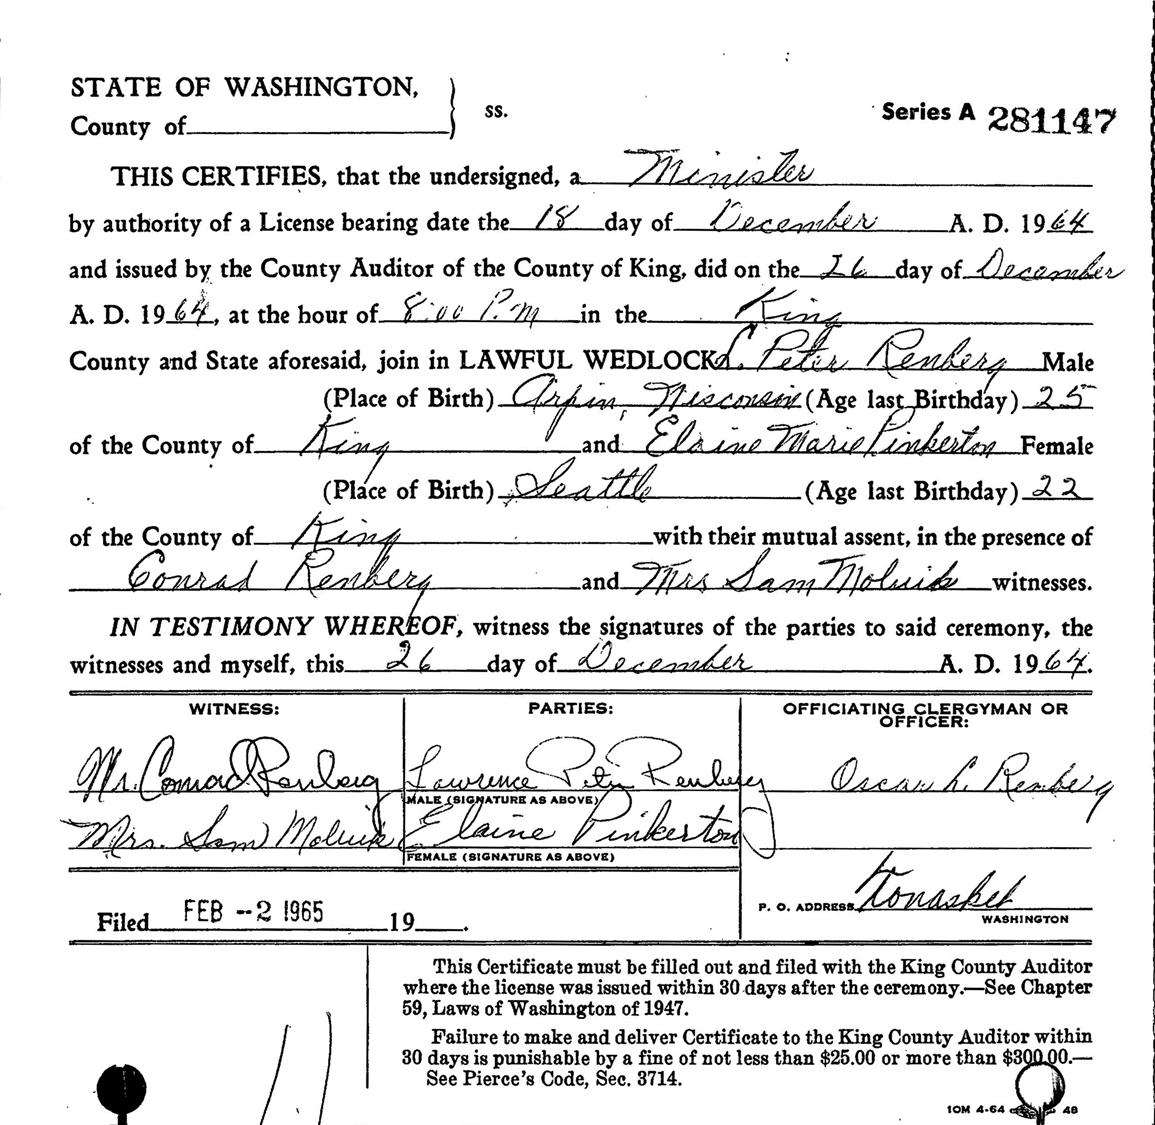 STATE OF WASHINGTON,
County of
ss.
Series A 281147
THIS CERTIFIES, that the undersigned, a Minister
by authority of a License bearing date the 18 day of December A. D. 1964
and issued by the County Auditor of the County of King, did on the 26 day of December
A. D. 1964, at the hour of 8:00 P.M in the King
County and State aforesaid, join in LAWFUL WEDLOCK L. Peter Renberg Male
(Place of Birth) Arpin, Wisconsin (Age last Birthday) 25
of the County of King and Elaine Marie Pinkerton Female
(Place of Birth) Seattle (Age last Birthday) 22
of the County of King with their mutual assent, in the presence of
Conrad Renberg and Mrs Sam Moluik witnesses.
IN TESTIMONY WHEREOF, witness the signatures of the parties to said ceremony, the
witnesses and myself, this 26 day of December A. D. 1964.
WITNESS:
Mr. Conrad Renberg
Mrs. Sam Moluik
PARTIES:
Lawrence Peter Renberg
MALE (SIGNATURE AS ABOVE)
Elaine Pinkerton
FEMALE (SIGNATURE AS ABOVE)
OFFICIATING CLERGYMAN OR
OFFICER:
Oscar L. Renberg
P. O. ADDRESS Tonasket
WASHINGTON
Filed FEB -2 1965 19 .
This Certificate must be filled out and filed with the King County Auditor
where the license was issued within 30 days after the ceremony.—See Chapter
59, Laws of Washington of 1947.
Failure to make and deliver Certificate to the King County Auditor within
30 days is punishable by a fine of not less than $25.00 or more than $300.00.—
See Pierce's Code, Sec. 3714.
10M 4-64 48